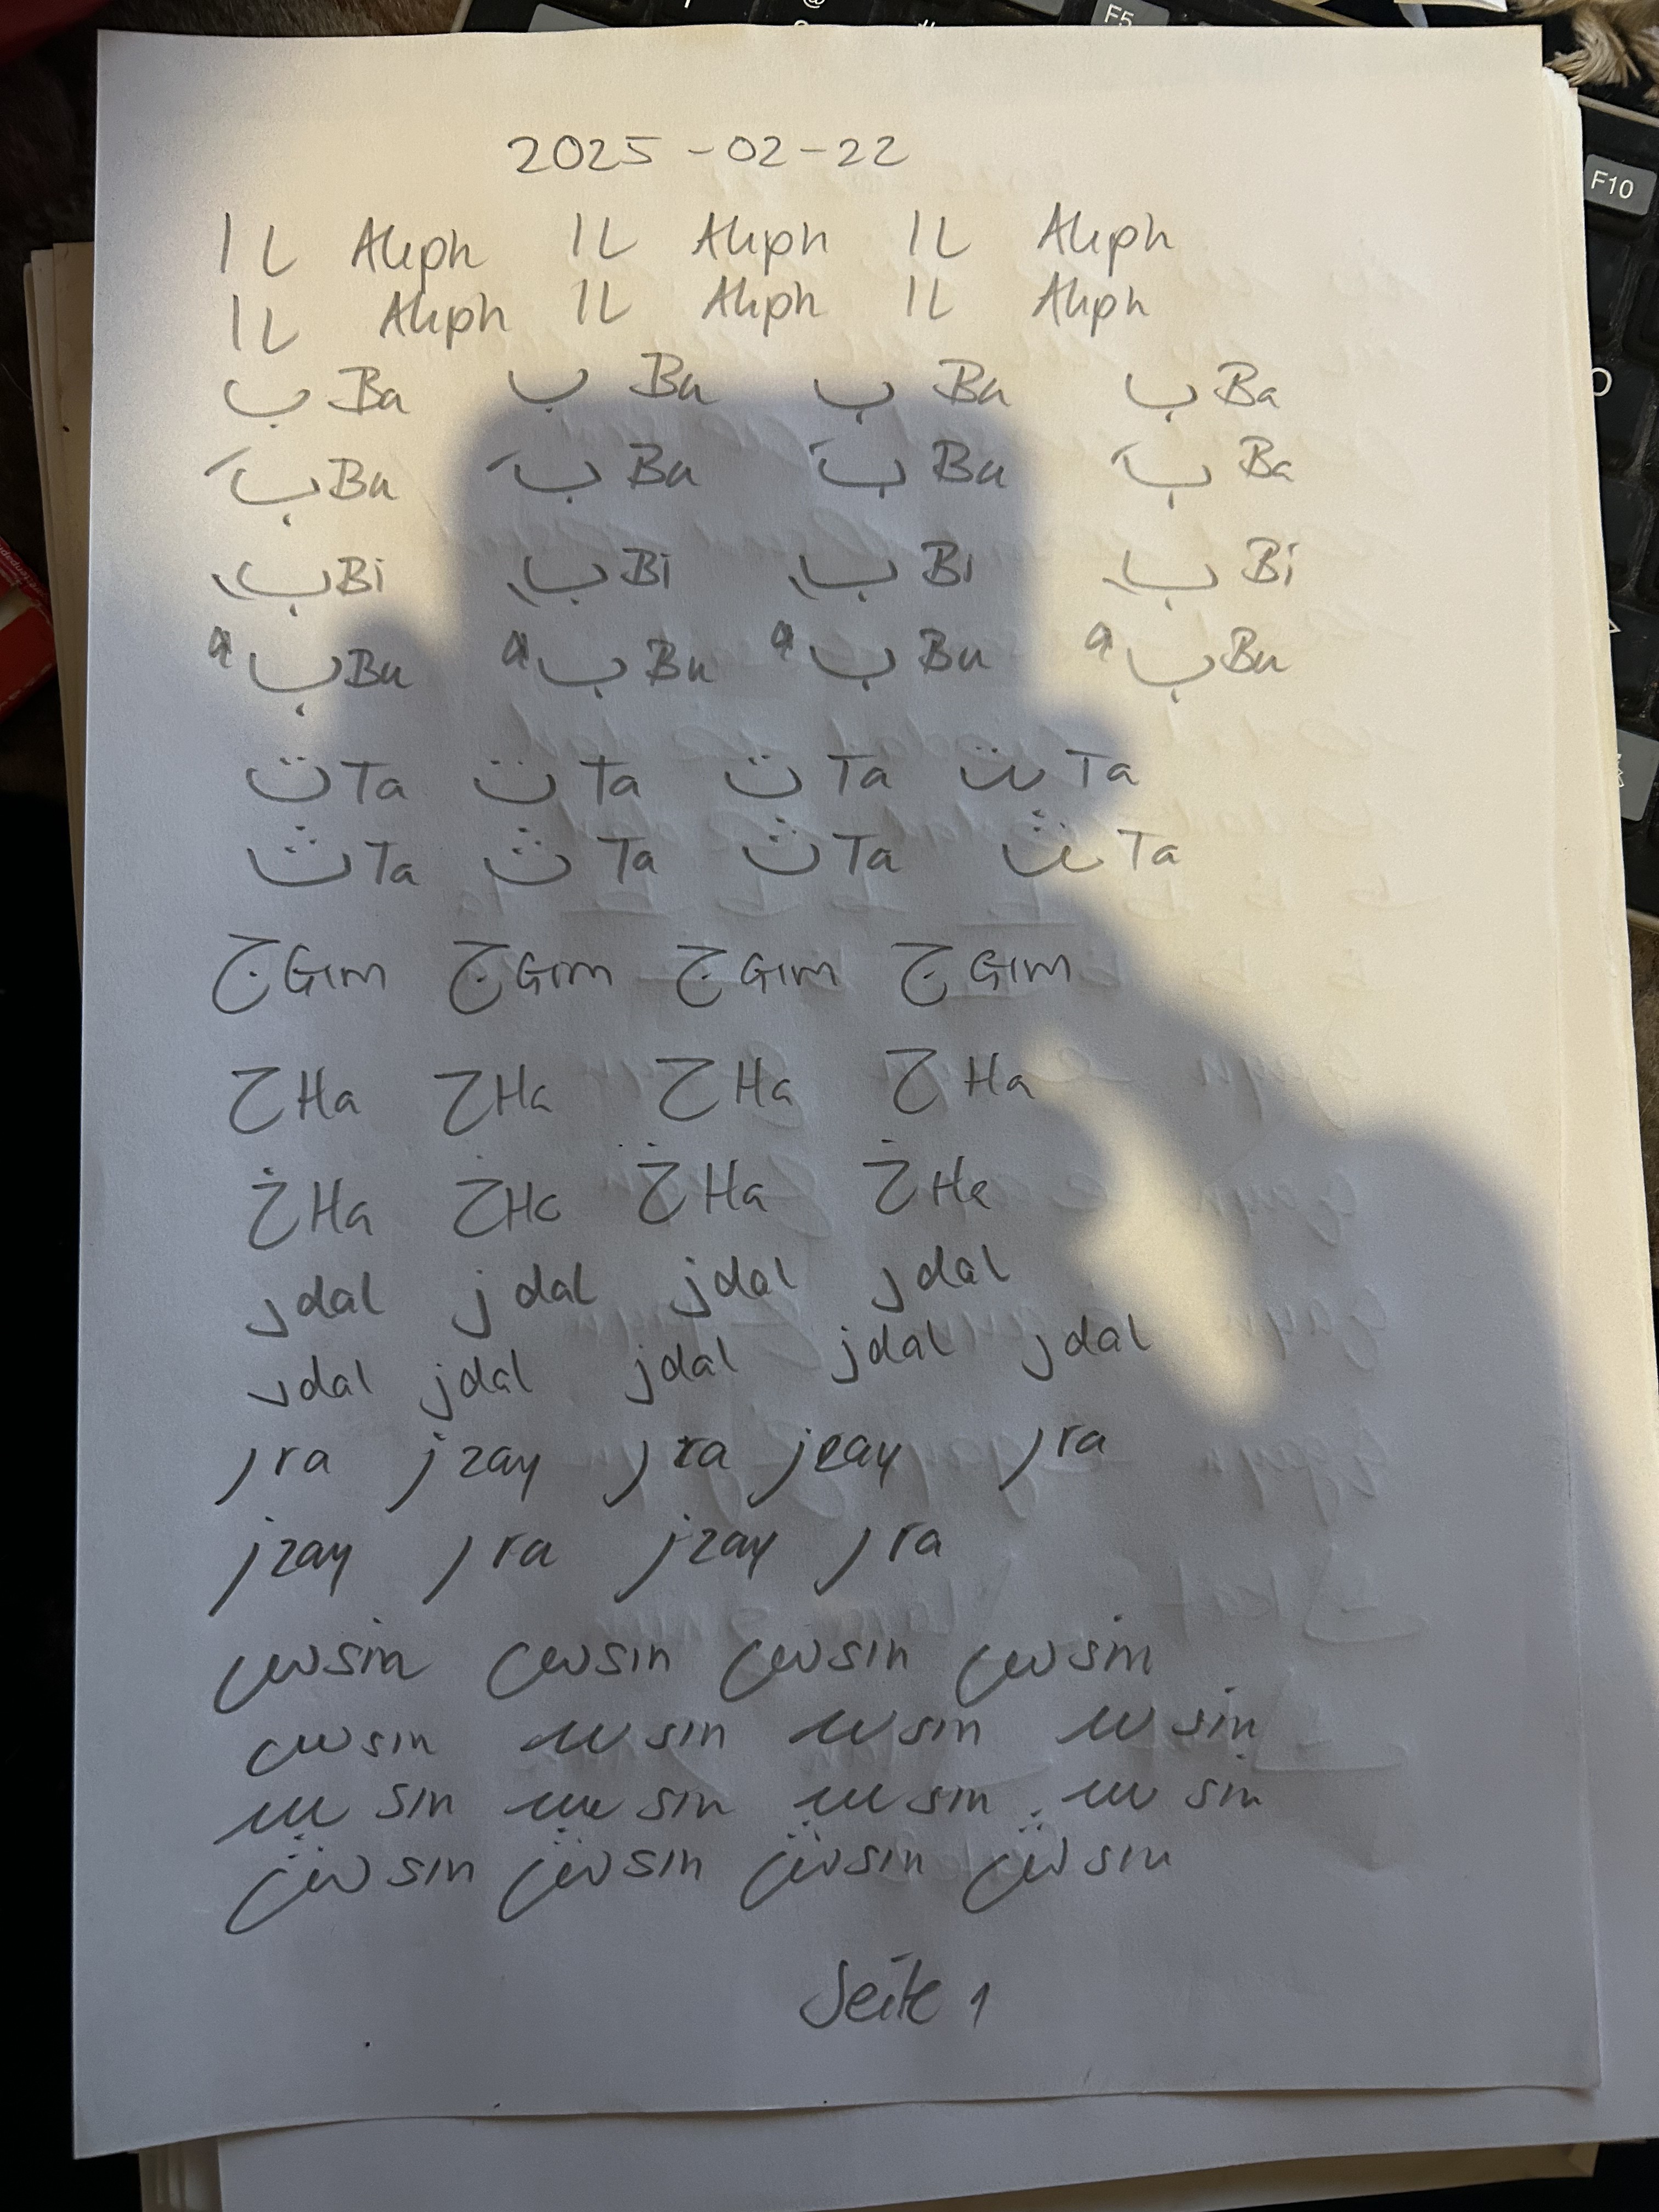 2025-02-22
ا ل Aliph ا ل Aliph ا ل Aliph
ا ل Aliph ا ل Aliph ا ل Aliph
ب Ba ب Ba ب Ba ب Ba
بَ Ba بَ Ba بَ Ba بَ Ba
Bi Bi Bi Bi
بُ Bu بُ Bu بُ Bu بُ Bu
ت Ta ت Ta ت Ta ت Ta
ث Ta ث Ta ث Ta ث Ta
ج Gim ج Gim ج Gim ج Gim
ح Ha ح Ha ح Ha ح Ha
خ Ha خ Ha خ Ha خ Ha
د dal د dal د dal د dal
د dal د dal د dal د dal د dal
ر ra ز zay ر ra ز zay ر ra
ز zay ر ra ز zay ر ra
س sin س sin س sin س sin
sin sin sin sin
sin sin sin sin
ش sin ش sin ش sin ش sin
Seite 1